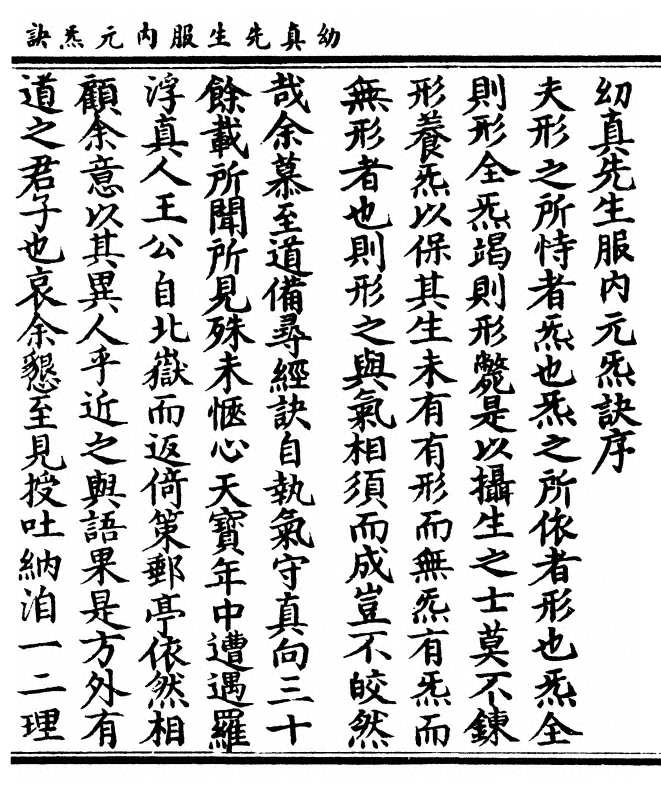 幼真先生服内元炁訣
幼真先生服内元炁訣序
夫形之所恃者炁也炁之所依者形也炁全
則形全炁竭則形斃是以攝生之士莫不鍊
形養炁以保其生未有有形而無炁有炁而
無形者也則形之與氣相須而成豈不皎然
哉余慕至道備尋經訣自執氣守真向三十
餘載所聞所見殊未愜心天寶年中遭遇羅
浮真人王公自北嶽而返倚策郵亭依然相
顧余意以其異人乎近之與語果是方外有
道之君子也哀余懇至見授吐納洎一二理